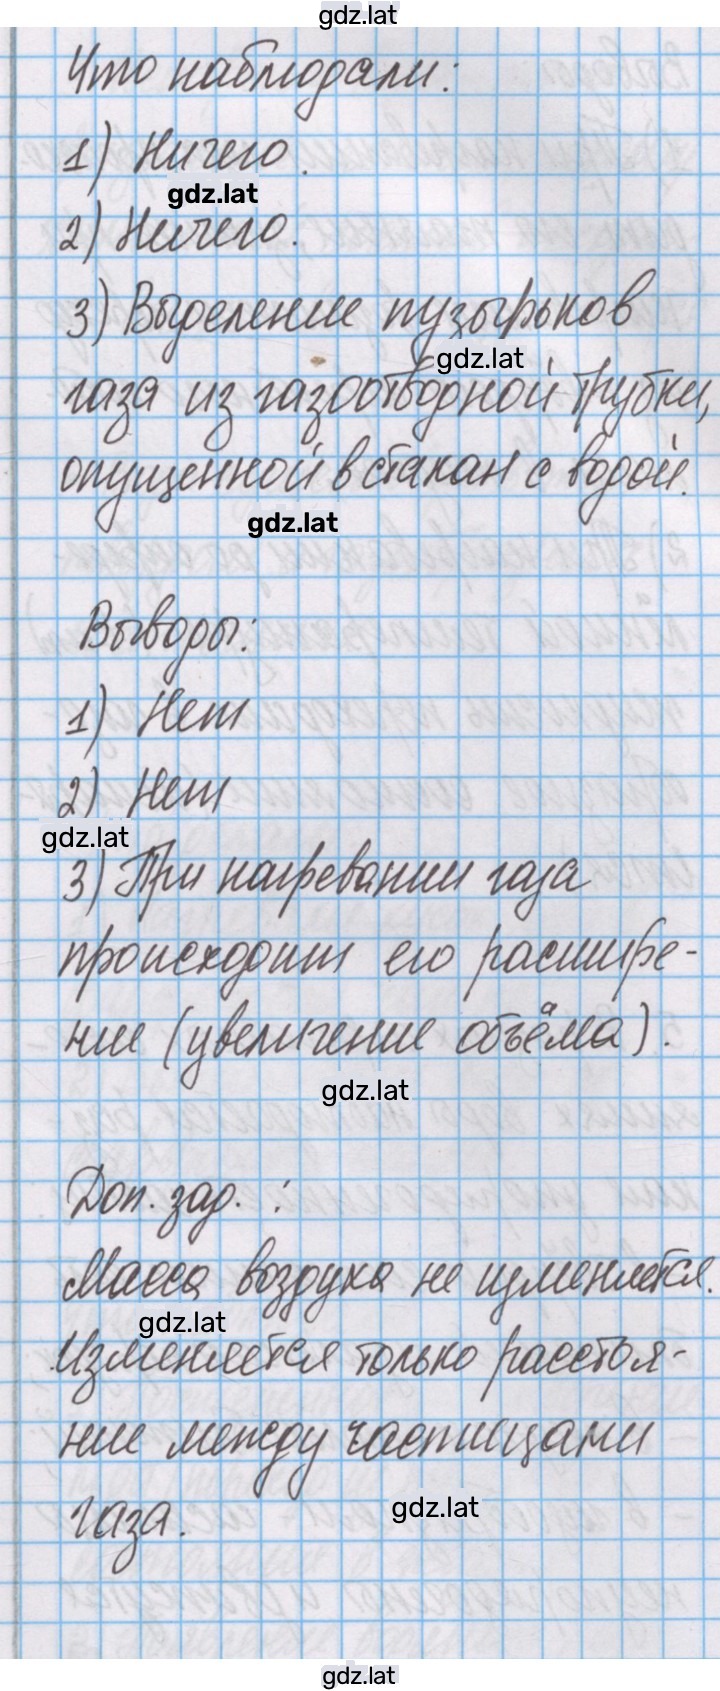 gdz.lat
Что наблюдали:
1) Ничего.
gdz.lat
2) Ничего.
3) Выделение пузырьков
gdz.lat
газа из газоотводной трубки,
опущенной в стакан с водой.
gdz.lat
Выводы:
1) Нет
2) Нет
gdz.lat
3) При нагревании газа
происходит его расшире-
ние (увеличение объёма).
gdz.lat
Доп. зад. :
Масса воздуха не изменяется.
gdz.lat
Изменяется только расстоя-
ние между частицами
gdz.lat
газа.
gdz.lat